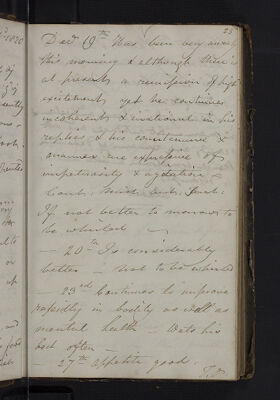 25
Decr 19th Has been very noisy
this morning & although there is
at present a remission of high
excitement yet he continues
incoherent & irrational in his
replies & his countenance &
manner are expressive of
impetuosity & agitation
Cont.
If not better to morrow to
be whirled –
– 20th Is considerably
better – not to be whirled
– 23rd Continues to improve
rapidly in bodily as well as
mental health – Wets his
bed often –
– 27th appetite good –